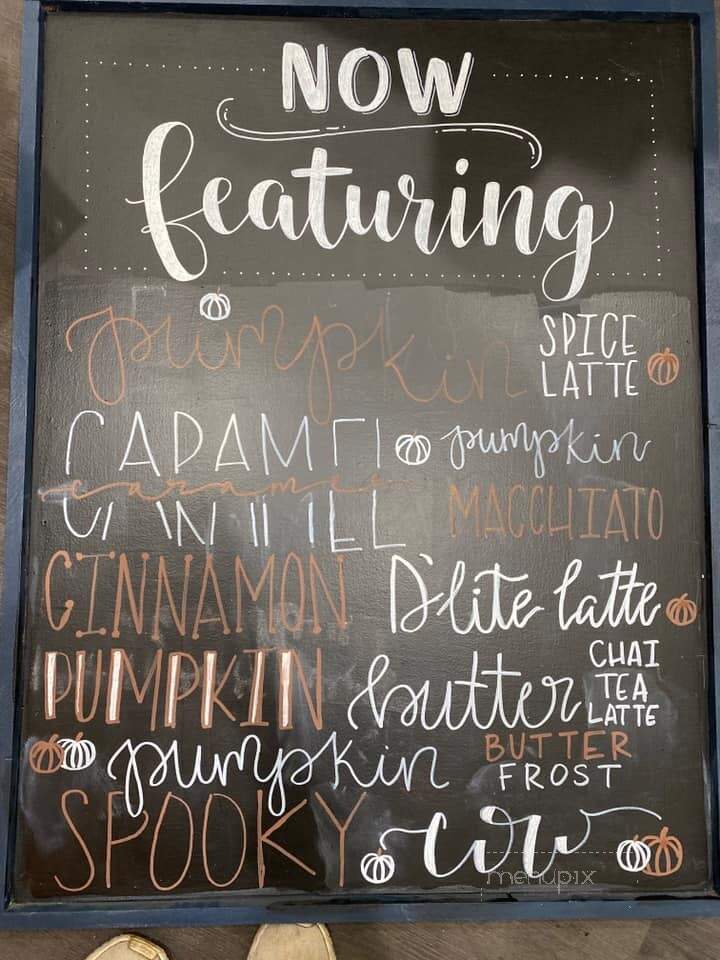 NOW
featuring
pumpkin SPICE
LATTE
CARAMEL pumpkin
caramel MACCHIATO
CINNAMON D'lite latte
PUMPKIN butter CHAI
TEA
LATTE
pumpkin BUTTER
FROST
SPOOKY cow
menupix